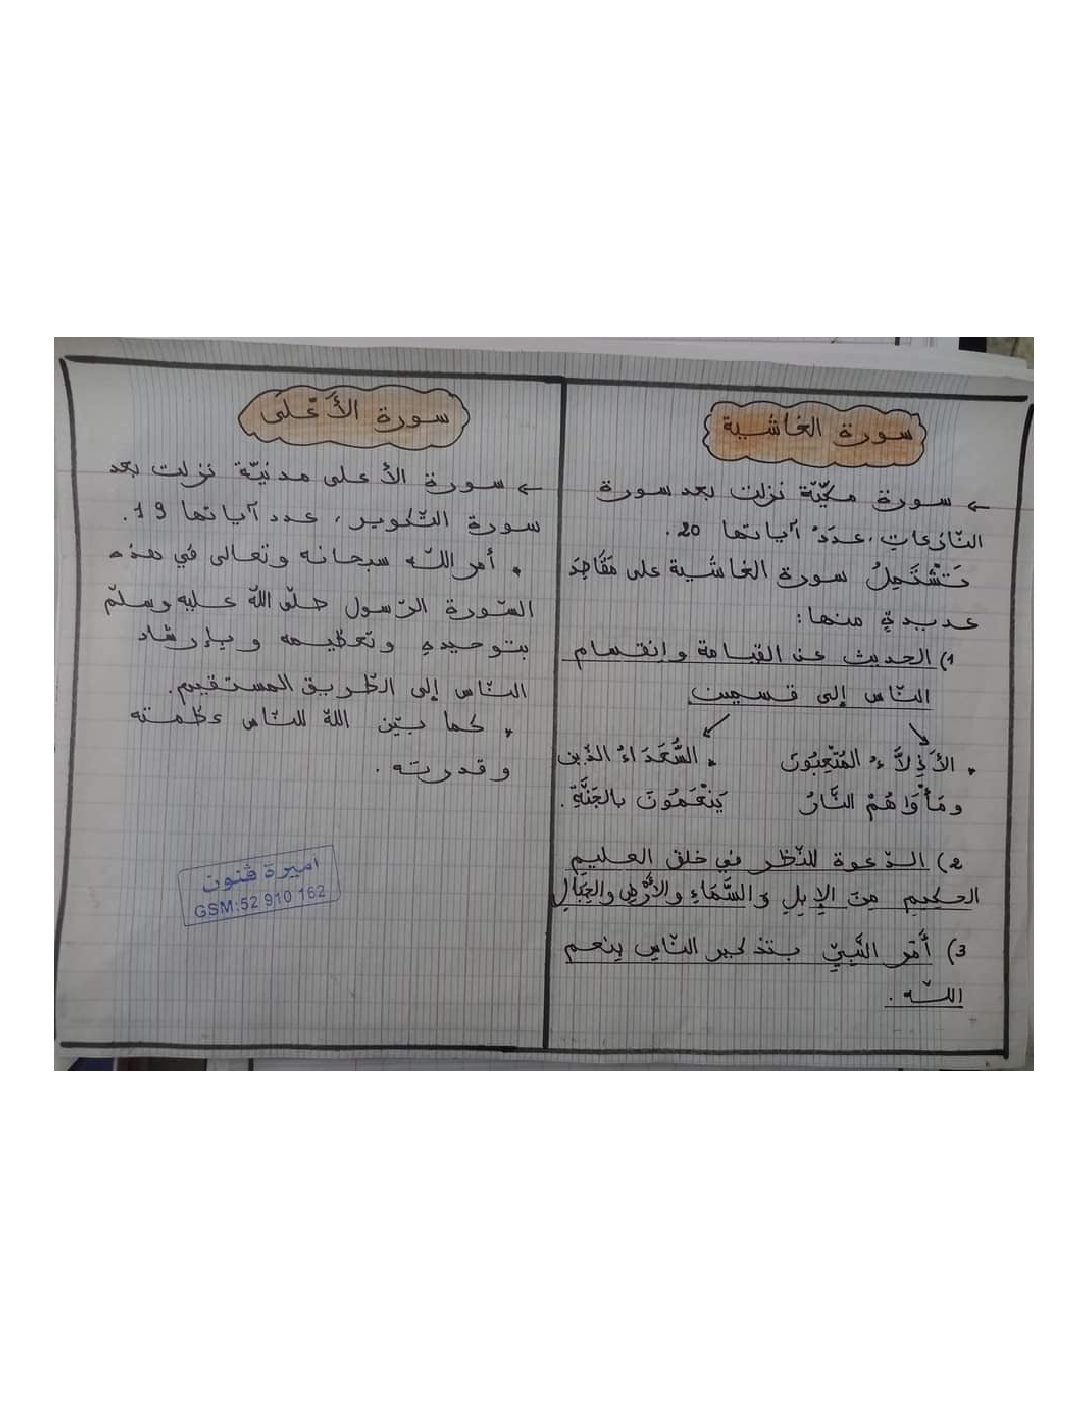 سورة الغاشية
← سورة مكيّة نزلت بعد سورة
النّازعاتِ، عَدَدُ آياتها 20.
تَشْتَمِلُ سورة الغاشية على مَقَاصِدَ
عديدةٍ منها:
1) الحديث عن القيامة وانقسام
النّاس إلى قسمين
* الأَذِلاَّءُ المُتْعَبُونَ
ومَأْوَاهُمْ النَّارُ
* السُّعَدَاءُ الذين
يَنْعَمُونَ بالجَنَّةِ.
2) الدّعوة للنّظر في خلق العليمِ
الحكيمِ مِنَ الإِبِلِ وَالسَّمَاءِ والأَرْضِ والجِبَالِ
3) أَمَر النَّبِيّ بتذكير النّاسِ بنعم
اللّه.
سورة الأَعْلَى
← سورة الأعلى مدنيّة نزلت بعد
سورة التّكوير، عدد آياتها 19.
* أمر اللّه سبحانه وتعالى في هذه
السّورة الرّسول صلّى اللّه عليه وسلّم
بتوحيدهِ وتعظيمه وبإرشاد
النّاس إلى الطّريق المستقيم.
* كما بيّن اللّه للنّاس عظمته
وقدرته.
أميرة ڤنون
GSM:52 910 162